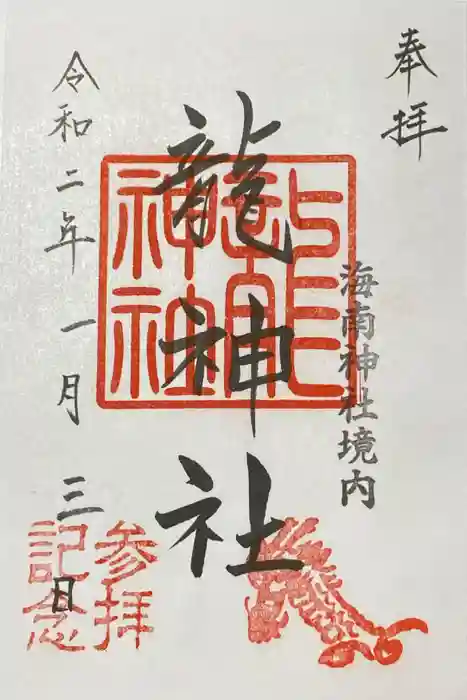 奉拝
海南神社境内
龍神社
龍神社
令和二年一月三日
参拝
記念